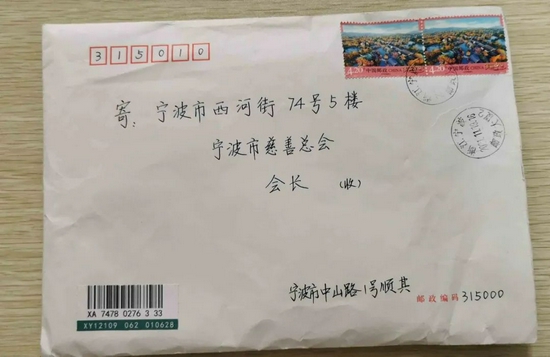 315010
寄: 宁波市西河街74号5楼
宁波市慈善总会
会长 (收)
宁波市中山路1号顺其
邮政编码 315000
XA 7478 0276 3 33
XY12109 062 010628